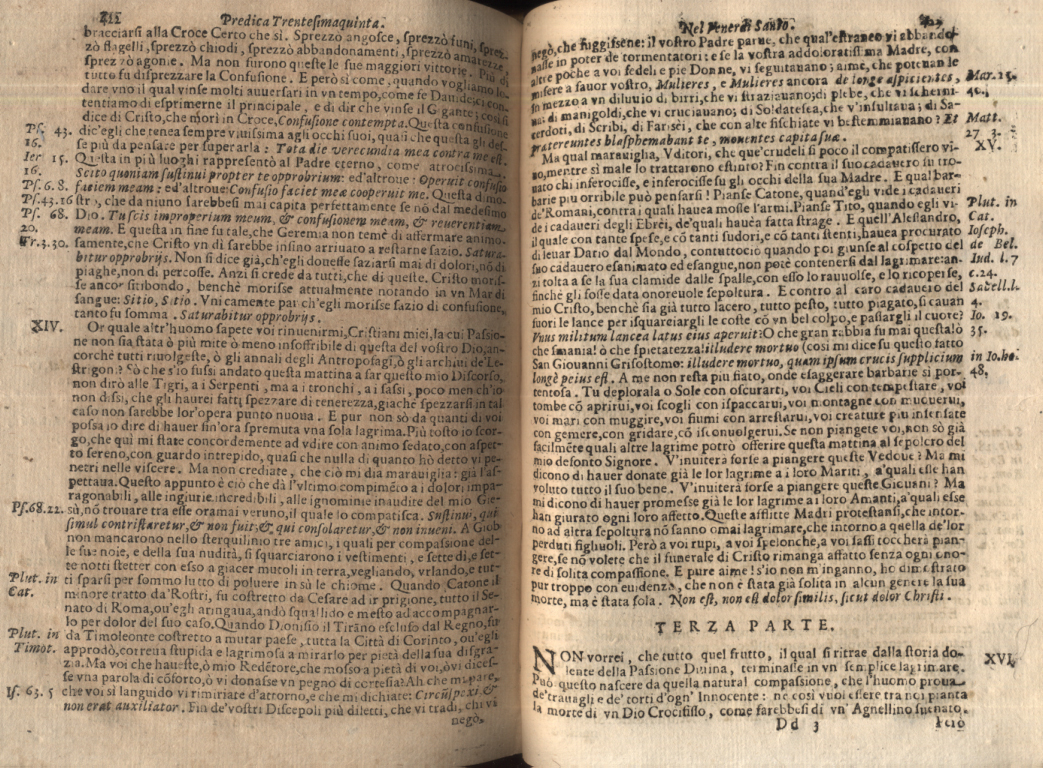 Predica Trentesimaquinta.
bracciarsi alla Croce Certo che sì. Sprezzò angosce, sprezzò funi, sprez-
zò flagelli, sprezzò chiodi, sprezzò abbandonamenti, sprezzò amarezze,
sprezzò agonie. Ma non furono queste le sue maggiori vittorie. Più di
tutto fu disprezzare la Confusione. E però sì come, quando vogliamo lo-
dare vno il qual vinse molti auuersari in vn tempo, come fe Dauide, ci con-
tentiamo di esprimerne il principale, e di dir che vinse il Gigante; così si
dice di Cristo, che morì in Croce, Confusione contempta. Questa confusione
Ps. 43. dic'egli che tenea sempre viuissima agli occhi suoi, quasi che questa gli des-
16. se più da pensare per superarla: Tota die verecundia mea contra me est.
Ier 15. Questa in più luoghi rappresentò al Padre eterno, come atrocissima.
16. Scito quoniam sustinui propter te opprobrium: ed'altroue: Operuit confusio
Ps. 6. 8. faciem meam: ed'altroue: Confusio faciei meæ cooperuit me. Questa dimo-
Ps. 43. 16 strò, che da niuno sarebbesi mai capita perfettamente se nō dal medesimo
Ps. 68. Dio. Tu scis improperium meum, & confusionem meam, & reuerentiam
20. meam. E questa in fine fu tale, che Geremia non temè di affermare animo-
Tr. 3. 30. samente, che Cristo vn dì sarebbe insino arriuato a restarne sazio. Satura-
bitur opprobrijs. Non si dice già, ch'egli douesse saziarsi mai di dolori, nō di
piaghe, non di percosse. Anzi si crede da tutti, che di queste Cristo moris-
se ancor sitibondo, benchè morisse attualmente notando in vn Mar di
sangue: Sitio, Sitio. Vnicamente par ch'egli morisse sazio di confusione,
tanto fu somma. Saturabitur opprobrijs.
XIV. Or quale altr'huomo sapete voi rinuenirmi, Cristiani miei, la cui Passio-
ne non sia stata ò più mite ò meno insoffribile di questa del vostro Dio, an-
corchè tutti riuolgeste, ò gli annali degli Antropofagi, ò gli archiui de'Le-
strigon? Sò che s'io fussi andato questa mattina a far questo mio Discorso,
non dirò alle Tigri, a i Serpenti, ma a i tronchi, a i sassi, poco men ch'io
non dissi, che gli haurei fatti spezzare di tenerezza, giachè spezzarsi in tal
caso non sarebbe lor'opera punto nuoua. E pur non sò da quanti di voi
possa io dire di hauer fin'ora spremuta vna sola lagrima. Più tosto io scor-
go, che quì mi state concordemente ad vdire con animo sedato, con aspet-
to sereno, con guardo intrepido, quasi che nulla di quanto hò detto vi pe-
netri nelle viscere. Ma non crediate, che ciò mi dia marauiglia: già l'as-
pettaua. Questo appunto è ciò che dà l'vltimo compimēto a i dolori impa-
ragonabili, alle ingiurie incredibili, alle ignominie inaudite del mio Gie-
Ps. 68. 22. sù, nō trouare tra esse oramai veruno, il quale lo compatisca. Sustinui, qui
simul contristaretur, & non fuit; & qui consolaretur, & non inueni. A Giob
non mancarono nello sterquilinio tre amici, i quali per compassione del-
le sue noie, e della sua nudità, si squarciarono i vestimenti, e sette dì, e set-
te notti stetter con esso a giacer mutoli in terra, vegliando, vrlando, e tut-
Plut. in ti sparsi per sommo lutto di poluere in sù le chiome. Quando Catone il
Cat. minore tratto da'Rostri, fu costretto da Cesare ad ir prigione, tutto il Se-
nato di Roma, ou'egli aringaua, andò squallido e mesto ad accompagnar-
lo per dolor del suo caso. Quando Dionisio il Tiranno escluso dal Regno, fu
Plut. in da Timoleonte costretto a mutar paese, tutta la Città di Corinto, ou'egli
Timot. approdò, correua stupida e lagrimosa a mirarlo per pietà della sua disgra-
zia. Ma voi che haueste, ò mio Redētore, che mosso a pietà di voi, ò vi dices-
se vna parola di cōforto, ò vi donasse vn pegno di cortesia? Ah che mi pare,
Is. 63. 5 che voi sì languido vi rimiriate d'attorno, e che mi fischiate: Circūspexi, &
non erat auxiliator. Fin de'vostri Discepoli più diletti, chi vi tradì, chi vi
negò,
Nel Venerdì Santo.
negò, che fuggissene: il vostro Padre parue, che qual'estraneo vi abbando-
nasse in poter de tormentatori: e se la vostra addoloratissima Madre, con
altre poche a voi fedeli e pie Donne, vi seguitauano; aime, che poteuan le
misere a fauor vostro, Mulieres, e Mulieres ancora de longe aspicientes, Mar. 15.
in mezzo a vn diluuio di birri, che vi straziauano; di plebe, che vi scherni- 40.
ua; di manigoldi, che vi cruciauano; di Soldatesca, che v'insultaua; di Sa-
cerdoti, di Scribi, di Farisei, che con alte fischiate vi bestemmiauano? Et Matt.
prætereuntes blasphemabant te, mouentes capita sua. 27 3.
Ma qual marauiglia, Vditori, che que'crudeli sì poco il compatissero vi- XV.
uo, mentre sì male lo trattarono estinto? Fin contra il suo cadauero su tro-
uato chi inferocisse, e inferocisse su gli occhi della sua Madre. E qual bar-
barie più orribile può pensarsi! Pianse Catone, quand'egli vide i cadaueri
de'Romani, contra i quali hauea mosse l'armi. Pianse Tito, quando egli vi- Plut. in
de i cadaueri degli Ebrei, de'quali hauea fatta strage. E quell'Alessandro, Cat.
il quale con tante spese, e cō tanti sudori, e cō tanti stenti, hauea procurato Ioseph.
di leuar Dario dal Mondo, contuttociò quando poi giunse al cospetto del de Bel.
suo cadauero esanimato ed esangue, non potè contenersi dal lagrimare: an- Iud. l. 7
zi tolta a se la sua clamide dalle spalle, con esso lo rauuolse, e lo ricoperse, c. 24.
finchè gli fosse data onoreuole sepoltura. E contro al caro cadauero del Satell. l.
mio Cristo, benchè sia già tutto lacero, tutto pesto, tutto piagato, si cauan 4.
fuori le lance per isquarciargli le coste cō vn bel colpo, e passargli il cuore? Io. 19.
Vnus militum lancea latus eius aperuit? O che gran rabbia fu mai questa! ò 35.
che smania! ò che spietatezza! illudere mortuo (così mi dice su questo fatto
San Giouanni Grisostomo: illudere mortuo, quam ipsum crucis supplicium in Io. ho.
longè peius est. A me non resta più fiato, onde esaggerare barbarie sì por- 48,
tentosa. Tu deplorala o Sole con oscurarti, voi Cieli con tempestare, voi
tombe cō aprirui, voi scogli con ispaccarui, voi montagne con muouerui,
voi mari con muggire, voi fiumi con arrestarui, voi creature più insensate
con gemere, con gridare, cō isconuolgerui. Se non piangete voi, non sò già
facilmēte quali altre lagrime potrò offerire questa mattina al sepolcro del
mio defonto Signore. V'inuiterà forse a piangere queste Vedoue? Ma mi
dicono di hauer donate già le lor lagrime a i loro Mariti, a'quali esse han
voluto tutto il suo bene. V'inuiterà forse a piangere queste Giouani? Ma
mi dicono di hauer promesse già le lor lagrime a i loro Amanti, a'quali esse
han giurato ogni loro affetto. Queste afflitte Madri protestansi, che intor-
no ad altra sepoltura nō sanno omai lagrimare, che intorno a quella de'lor
perduti figliuoli. Però a voi rupi, a voi spelonche, a voi sassi toccherà pian-
gere, se nō volete che il funerale di Cristo rimanga affatto senza ogni ono-
re di solita compassione. E pure aime! s'io non m'inganno, ho dimostrato
pur troppo con euidenza, che non è stata già solita in alcun genere la sua
morte, ma è stata sola. Non est, non est dolor similis, sicut dolor Christi.
TERZA PARTE.
NON vorrei, che tutto quel frutto, il qual si ritrae dalla storia do- XVI.
lente della Passione Diuina, terminasse in vn semplice lagrimare.
Può questo nascere da quella natural compassione, che l'huomo proua
de'trauagli e de'torti d'ogn'Innocente: ne così vuoi essere tra noi pianta
la morte di vn Dio Crocifisso, come sarebbesi di vn'Agnellino suenato.
Dd 3